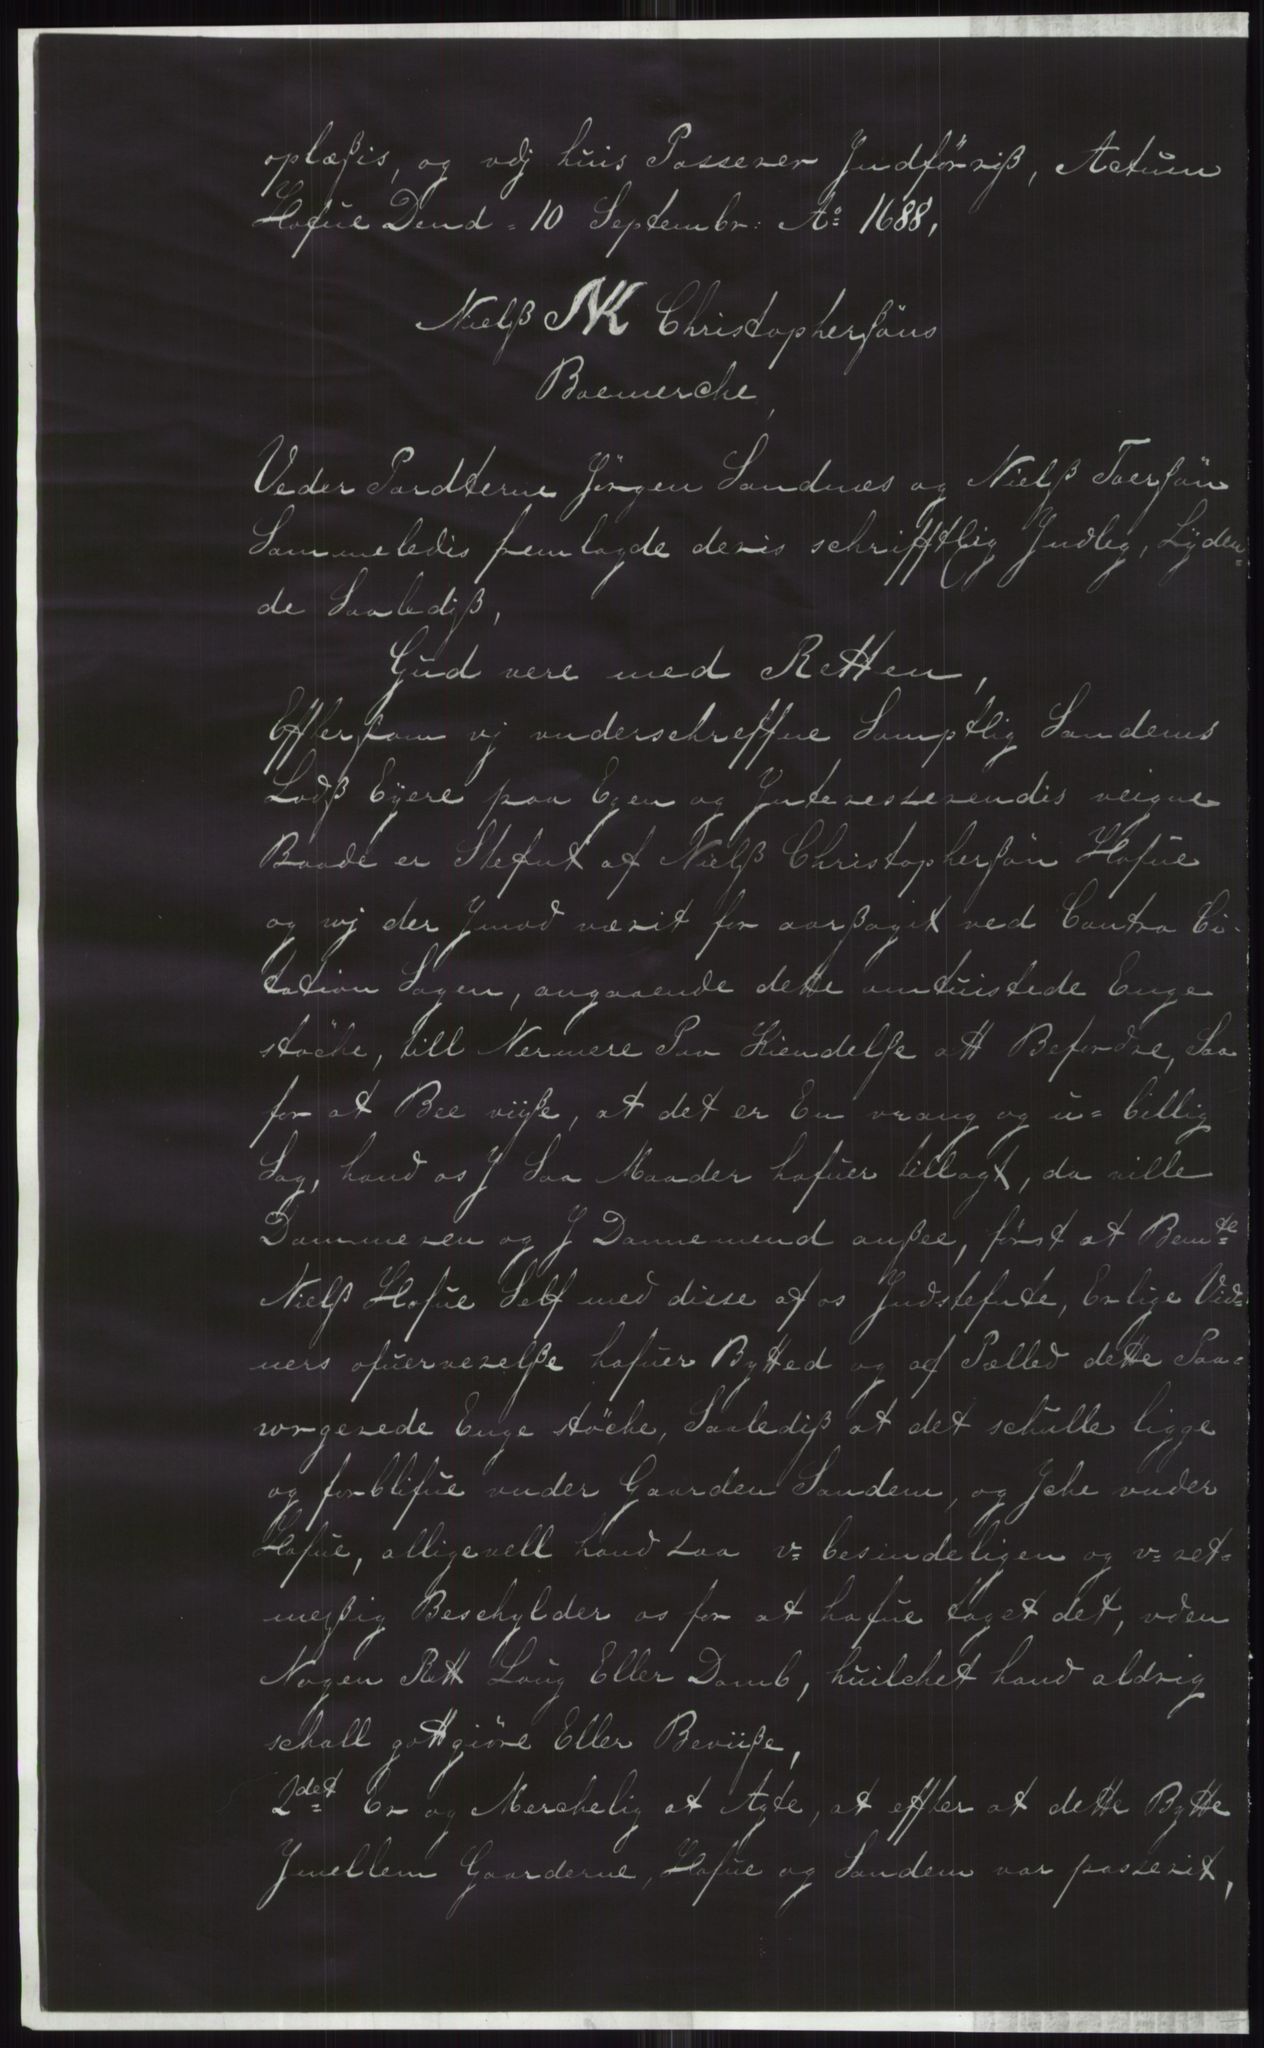 oplæßis, og vdj huis Passerer Jndförriß, Actum
Hofue Dend = 10 Septembr: Ao 1688,
Nielß NK Christopherßöns
Boemerche,
Veder Pardterne Jörgen Sandnes og Nielß Toerßön
Sammeledis fremlagde deris schrifftlig Jndleg, Lyden=
de Saalediß,
Gud vere med Retten,
Effterßom vj vnderschreffne Samptlig Sandems
Lodß Eyere paa Egen og Jnteresserendis veigne
Baade er Stefnt af Nielß Christopherßön Hofue
og vj der Jmod verit foraarßagit ved Contra Ci-
tation Sagen, angaaende dette omtuistede Enge
støche, till Nermere Paa Kiendelße att Befordre, Saa
for at Bee viiße, at det er En vrang og u=billig
Sag, hand os J Saa Maader hafuer tillagt, da ville
Dommeren og J Dannemend anßee, först at Bemte
Nielß Hofue Self med disse af os Jndstefnte, Erlige Vid=
ners ofuerverelße hafuer Bytted og af Pælled dette Paa=
vorgerede Enge støche, Saalediß at det schulle ligge
og forblifue vnder Gaarden Sandem, og Jche vnder
Hofue, alligevell hand saa v=besindeligen og v=ret=
meßig Beschylder os for at hafue taget det, vden
Nogen Rett Loug Eller Domb, huilchet hand aldrig
schall gottgiöre Eller Beviiße,
2det Er og Merchelig at Agte, at effter at dette Bytte
Jmellem Gaarderne, Hofue og Sandem var passerit,